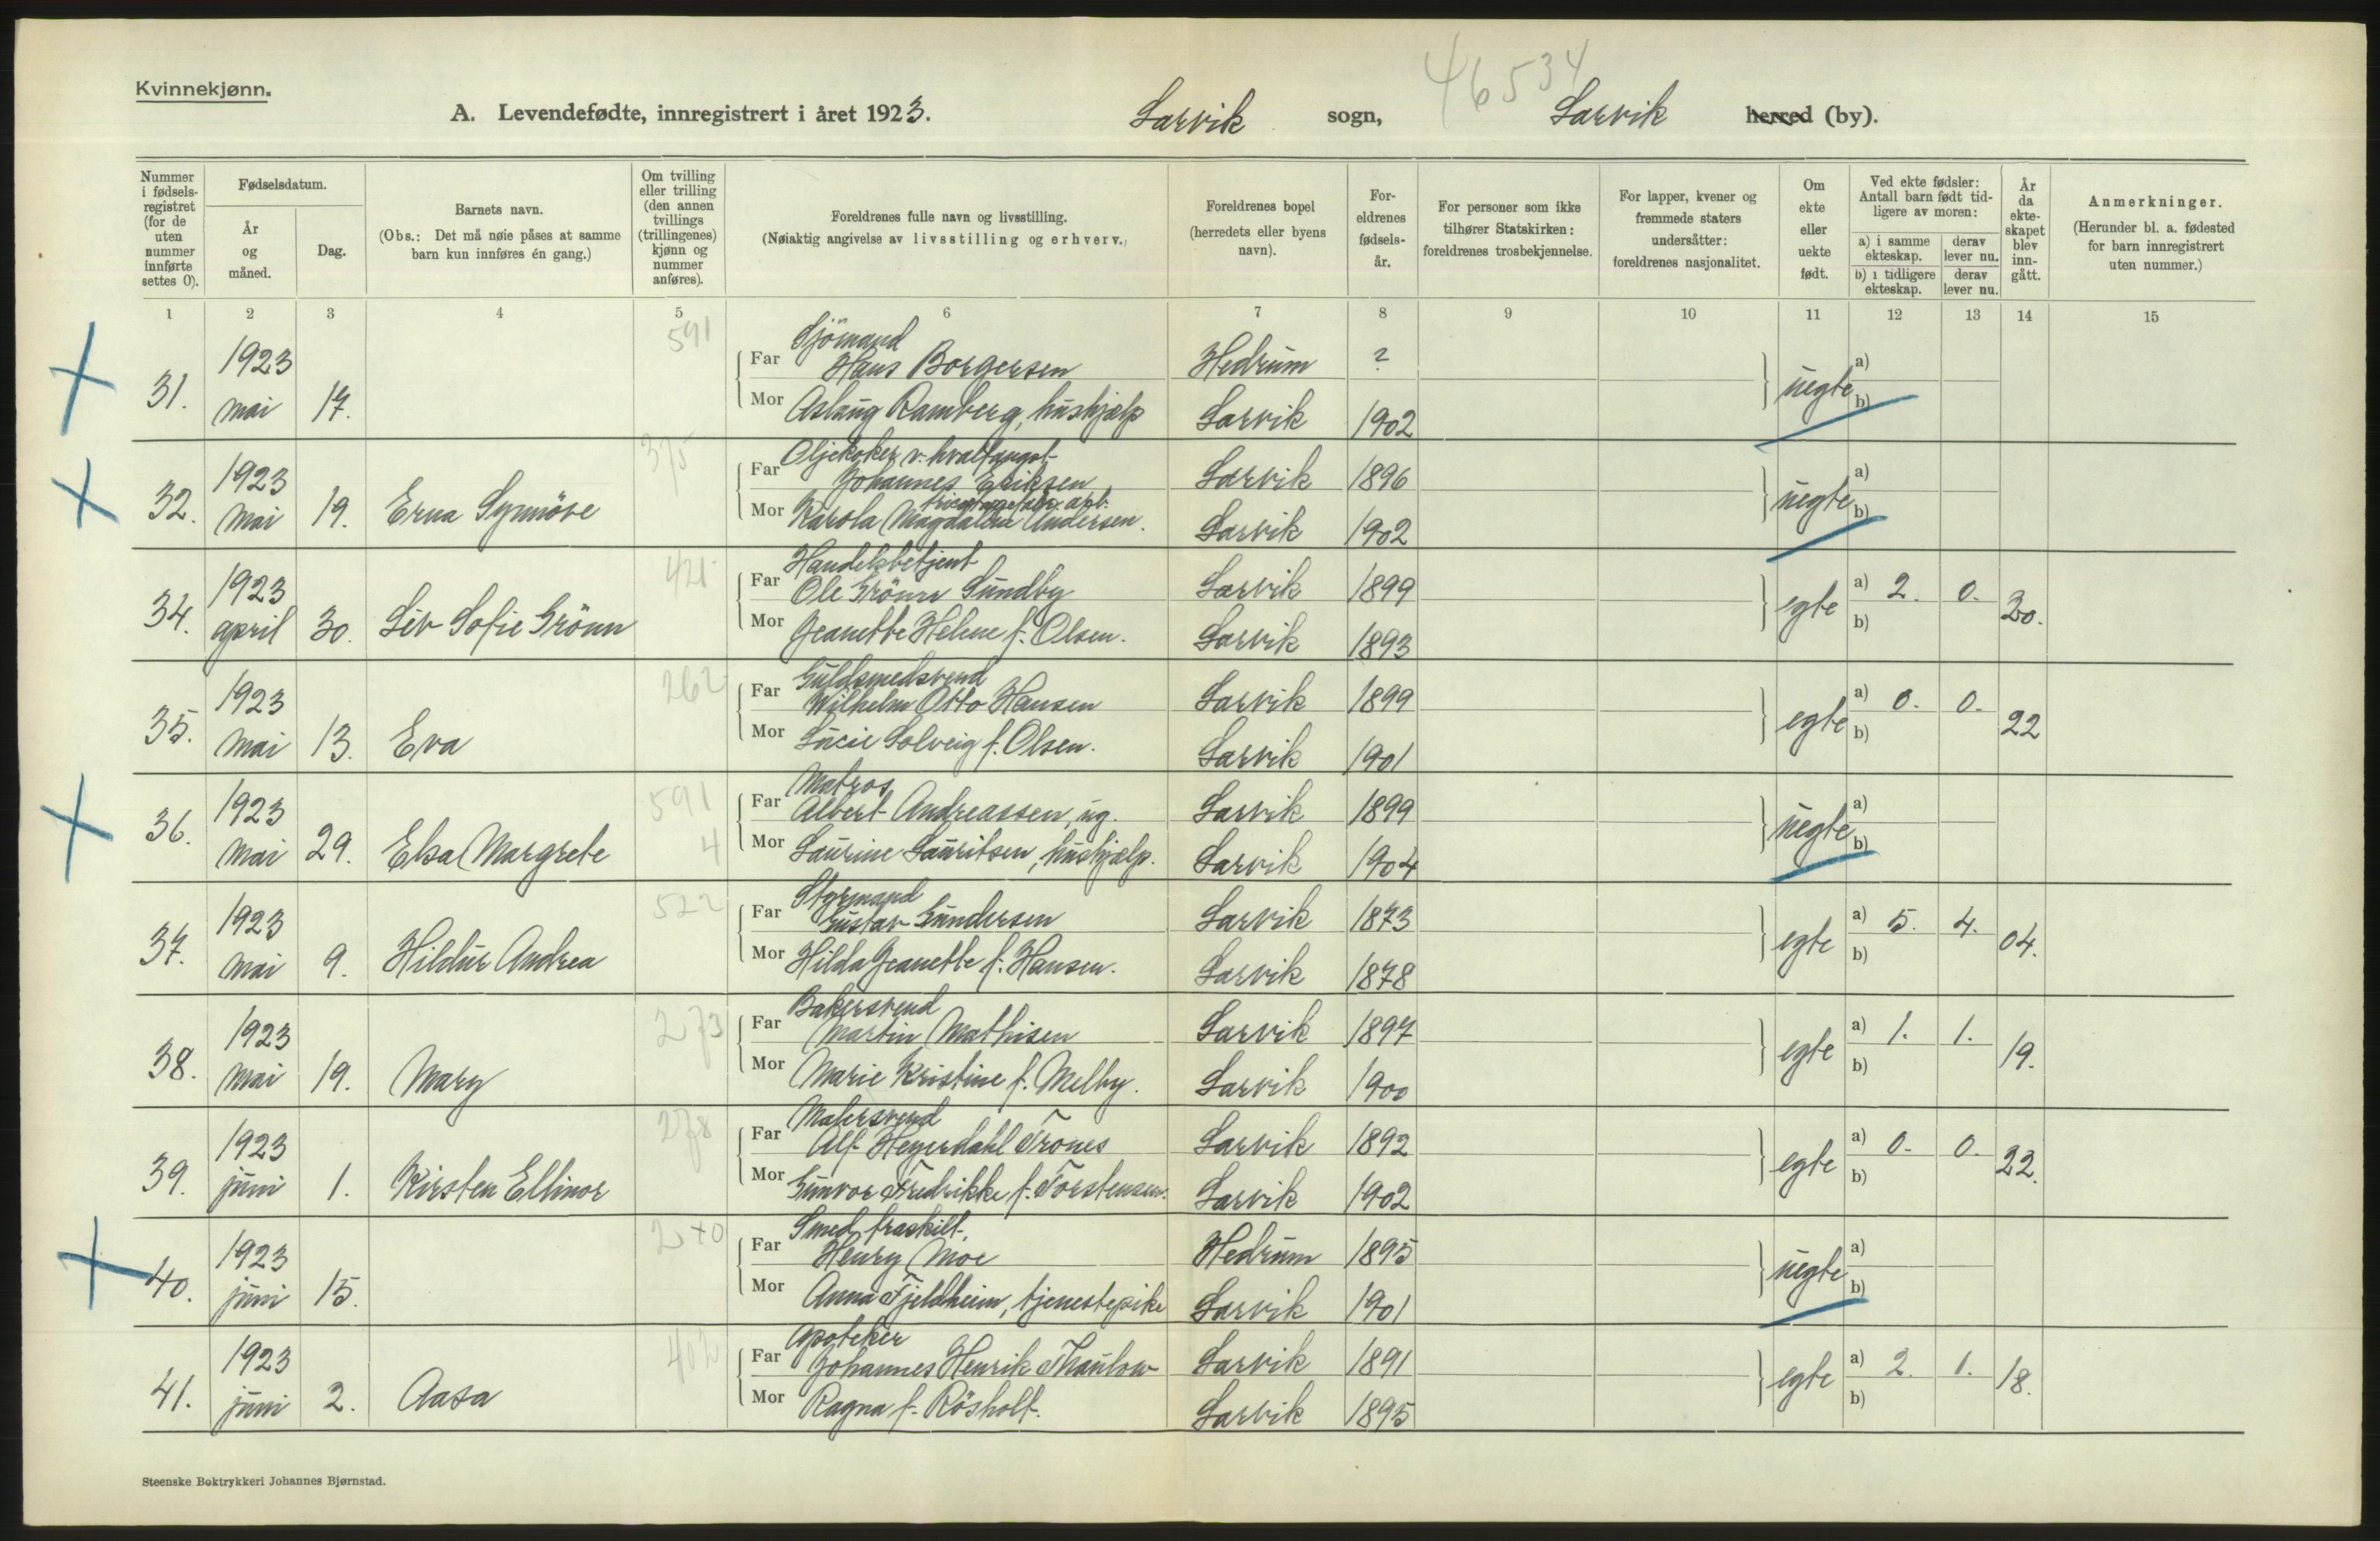 Kvinnekjønn.
A. Levendefødte, innregistrert i året 1923. Larvik sogn, Larvik herred (by).
46534
Nummer i fødselsregistret (for de uten nummer innførte settes 0).
Fødselsdatum.
År og måned.
Dag.
Barnets navn.
(Obs.: Det må nøie påses at samme barn kun innføres én gang.)
Om tvilling eller trilling (den annen tvillings (trillingenes) kjønn og nummer anføres).
Foreldrenes fulle navn og livsstilling.
(Nøiaktig angivelse av livsstilling og erhverv.)
Foreldrenes bopel (herredets eller byens navn).
Foreldrenes fødselsår.
For personer som ikke tilhører Statskirken: foreldrenes trosbekjennelse.
For lapper, kvener og fremmede staters undersåtter: foreldrenes nasjonalitet.
Om ekte eller uekte født.
Ved ekte fødsler: Antall barn født tidligere av moren:
a) i samme ekteskap. derav lever nu.
b) i tidligere ekteskap. derav lever nu.
År da ekteskapet blev inngått.
Anmerkninger.
(Herunder bl. a. fødested for barn innregistrert uten nummer.)
1 2 3 4 5 6 7 8 9 10 11 12 13 14 15
591 Sjömand
1923 Far Hans Borgersen Hedrum ? a)
31. mai 17. Mor Aslaug Ramberg, hushjælp Larvik 1902 uegte b)
375 Oljekoker v. hvalfangst
1923 Far Johannes Eriksen Larvik 1896 a)
32. mai 19. Erna Synnöve Mor Karola Magdalene Andersen. Larvik 1902 uegte b)
421 Handelsbetjent
1923 Far Ole Grönn Sundby Larvik 1899 a) 2. 0.
34. april 30. Liv Sofie Grönn Mor Jeanette Helene f. Olsen. Larvik 1893 egte b) 20.
262 Guldsmedsvend
1923 Far Wilhelm Otto Hansen Larvik 1899 a) 0. 0.
35. mai 13. Eva Mor Lucie Solveig f. Olsen. Larvik 1901 egte b) 22
591 Matros
1923 Far Albert Andreassen, ug. Larvik 1899 a)
36. mai 29. Elsa Margrete 4 Mor Laurine Lauritsen, hushjælp. Larvik 1904 uegte b)
522 Styrmand
1923 Far Gustav Gundersen Larvik 1873 a) 5. 4.
37. mai 9. Hildur Andrea Mor Hilda Jeanette f. Hansen. Larvik 1878 egte b) 04.
273 Bakersvend
1923 Far Martin Mathisen Larvik 1897 a) 1. 1.
38. mai 19. Mary Mor Marie Kristine f. Melby. Larvik 1900 egte b) 19.
278 Malersvend
1923 Far Alf Heyerdahl Trones Larvik 1892 a) 0. 0.
39. juni 1. Kirsten Ellinor Mor Gunvor Fredrikke f. Torstensen. Larvik 1902 egte b) 22.
240 Smed, fraskilt,
1923 Far Henry Moe Hedrum 1895 a)
40. juni 15. Mor Anna Fjeldheim, tjenestepike Larvik 1901 uegte b)
402 Apoteker
1923 Far Johannes Henrik Thaulow Larvik 1891 a) 2. 1.
41. juni 2. Aasa Mor Ragna f. Rösholt. Larvik 1895 egte b) 18.
Steenske Boktrykkeri Johannes Bjørnstad.